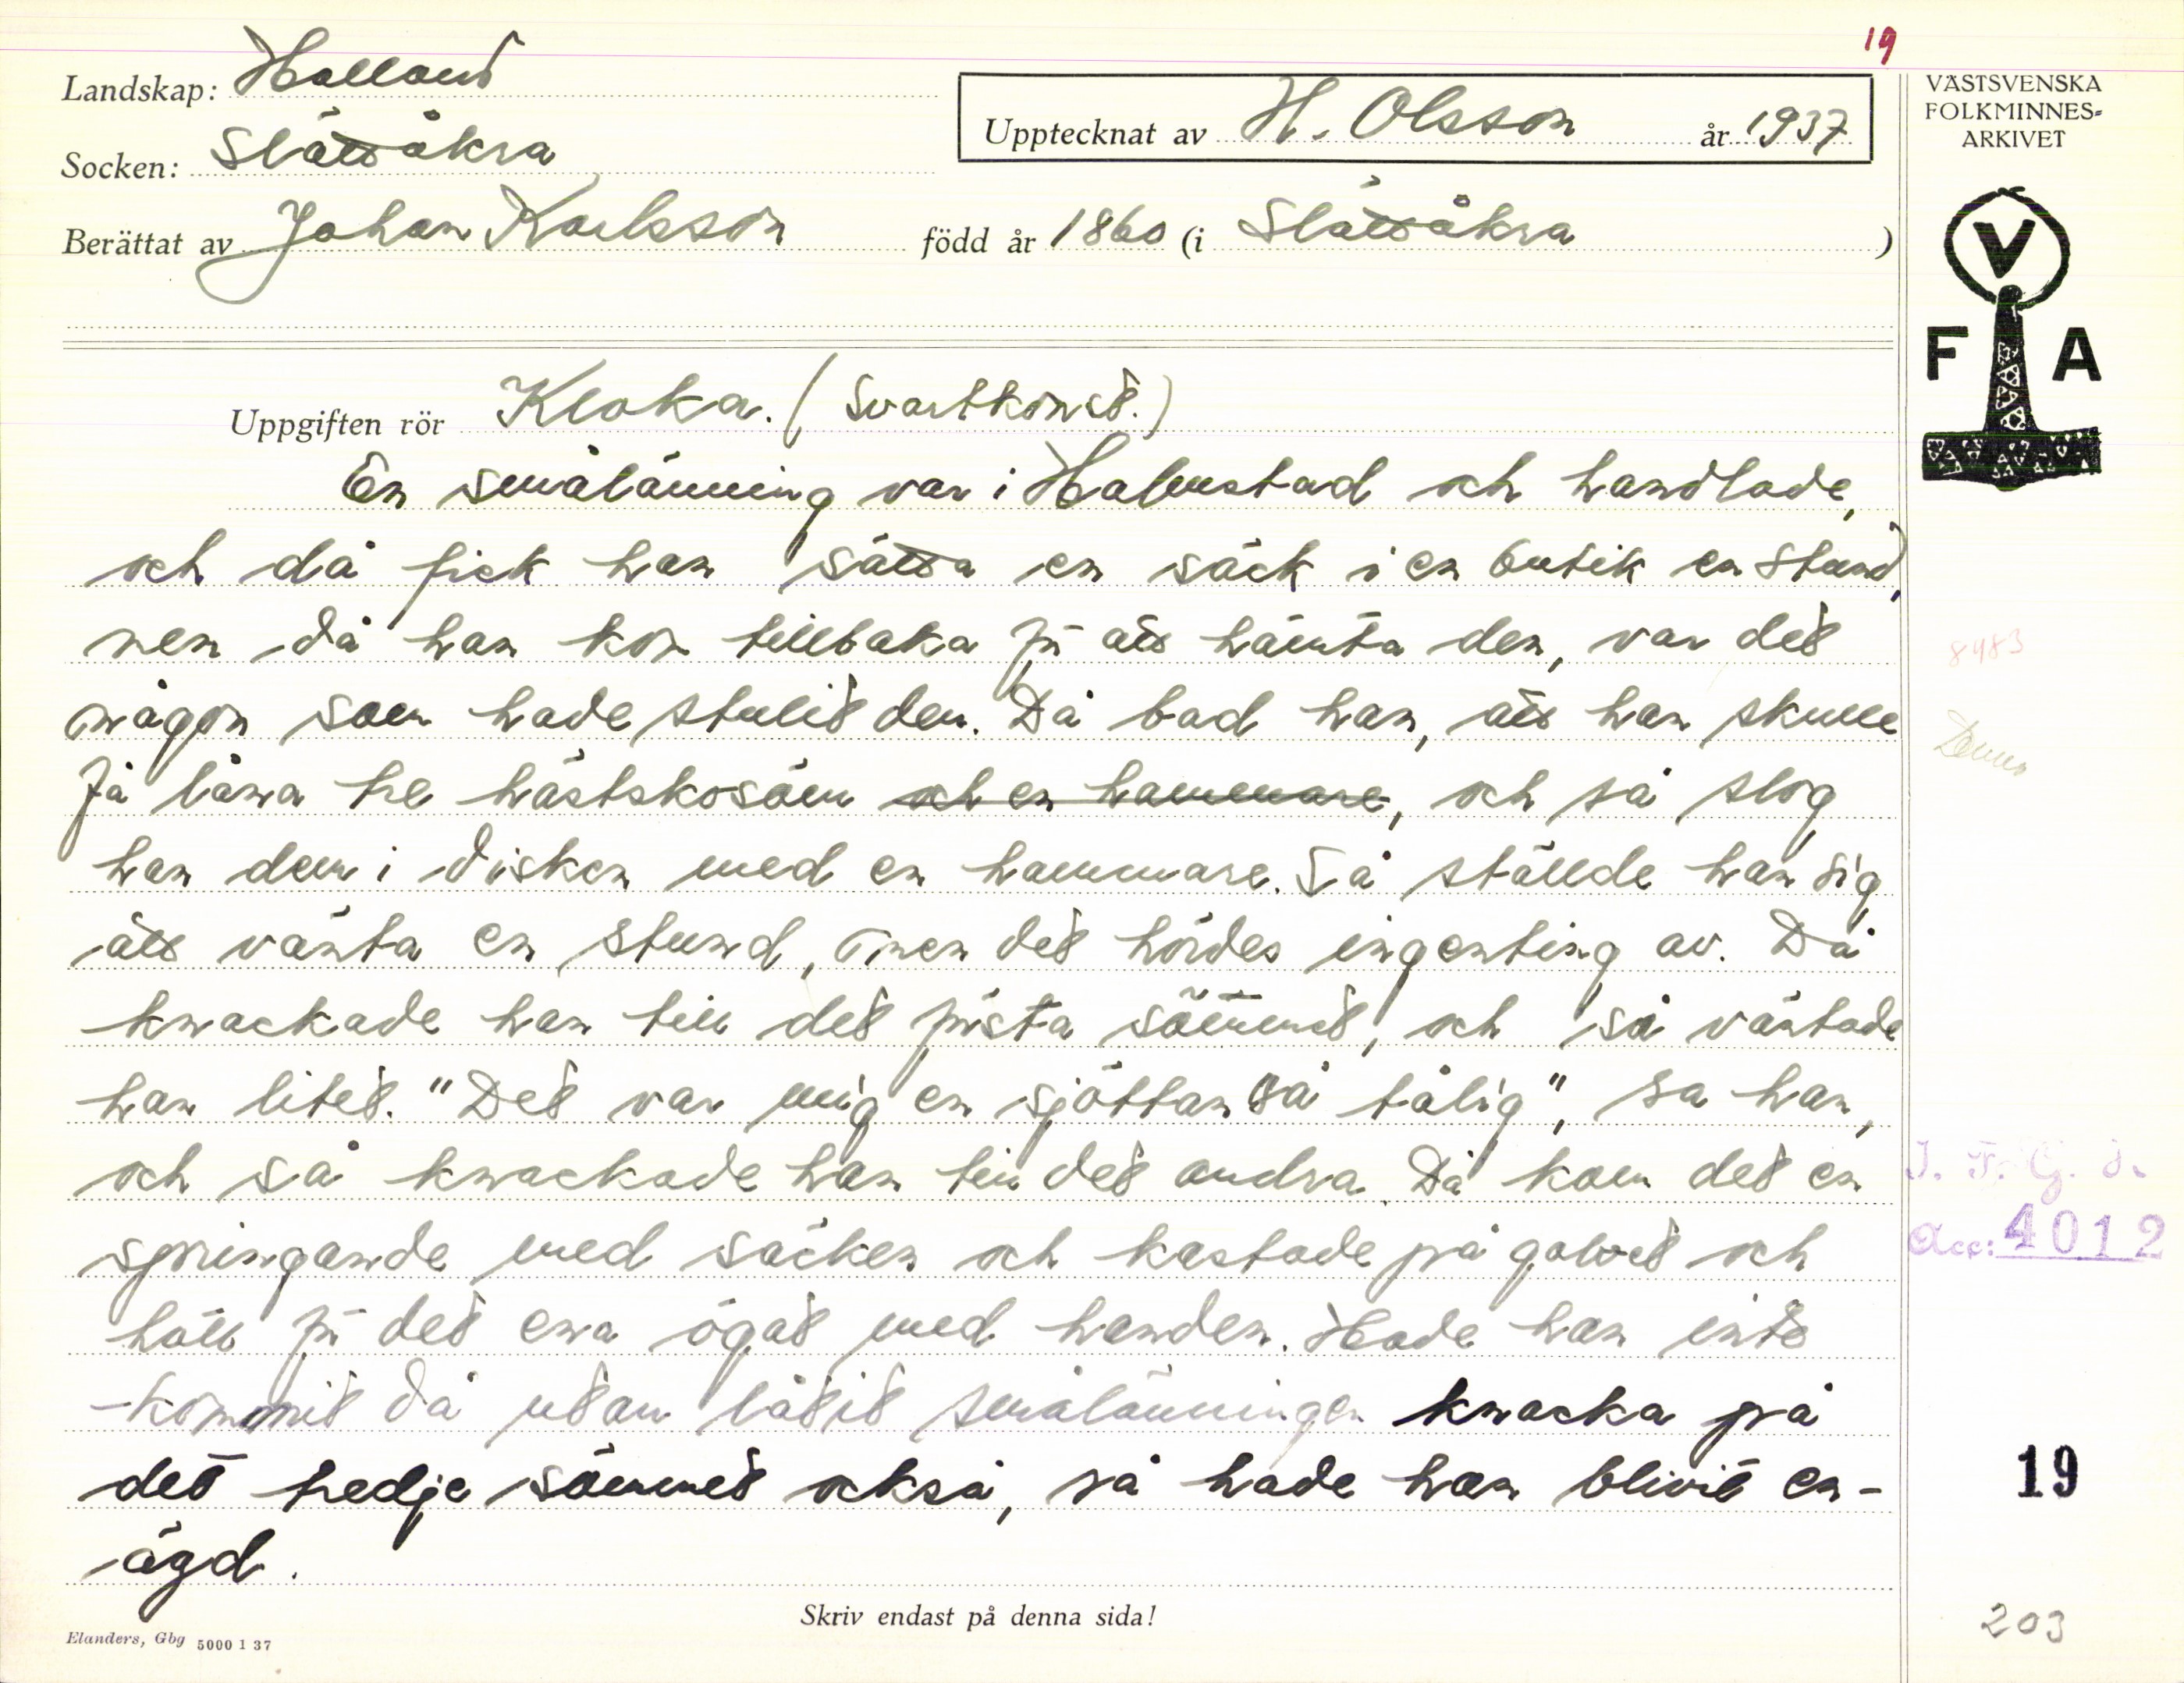 19
Landskap: Halland
Socken: Slättåkra
Berättat av Johan Karlsson född år 1860 (i Slättåkra)
Upptecknat av H. Olsson år 1937
VÄSTSVENSKA
FOLKMINNES-
ARKIVET
V
F A
Uppgiften rör Kloka. (Svartkonst.)
En smålänning var i Halmstad och handlade,
och då fick han sätta en säck i en butik en stund,
men då han kom tillbaka för att hämta den, var det
någon som hade stulit den. Då bad han, att han skulle
få låna tre hästskosöm och en hammare, och så slog
han dem i disken med en hammare. Så ställde han sig
att vänta en stund, men det hördes ingenting av. Då
knackade han till det första sömmet, och så väntade
han litet. "Det var mig en sjöttan så tålig", sa han,
och så knackade han till det andra. Då kom det en
springande med säcken och kastade på golvet och
höll för det ena ögat med handen. Hade han inte
kommit då utan låtit smålänningen knacka på
det tredje sömmet också, så hade han blivit en-
ögd.
8483
J. F. G. S.
Acc: 4012
19
203
Skriv endast på denna sida!
Elanders, Gbg 5000 1 37